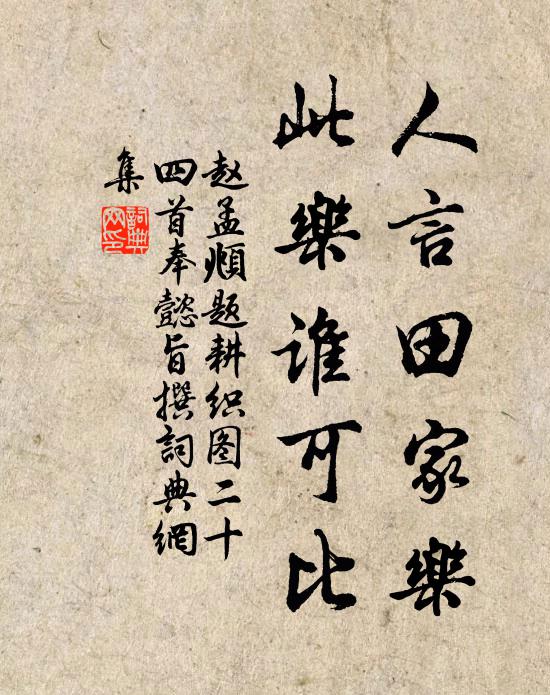 人言田家樂
此樂谁可比
赵孟頫题耕织图二十
四首奉懿旨撰詞典網
集
詞典
网印